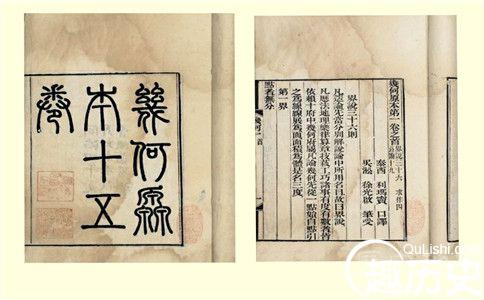 幾何原
本十五
卷
幾何原本第一卷之首 界說三十六 求作四
公論十九
泰西 利瑪竇 口譯
吳淞 徐光啟 筆受
界說三十六則
凡造論先當分別解說論中所用名目故曰界說
凡歷法地理樂律算章技藝工巧諸事有度有數者皆
依賴十府中幾何府屬凡論幾何先從一點始自點引
之為線線展為面面積為體是名三度
第一界
點者無分
QuLishi.com
趣历史